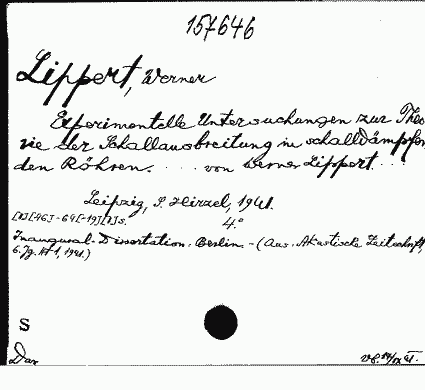 157646
Lippert, Werner
Experimentelle Untersuchungen zur Theo
rie der Schallausbreitung in schalldämpfen
den Röhren. .... von Werner Lippert. ...
Leipzig, S. Hirzel, 1941.
[1][-46]-64[-19][1]s. 4.°
Inaugural-Dissertation. Berlin. - (Aus. Akustische Zeitschrift,
6. Jg. Hf 1, 1941.)
S
Dar